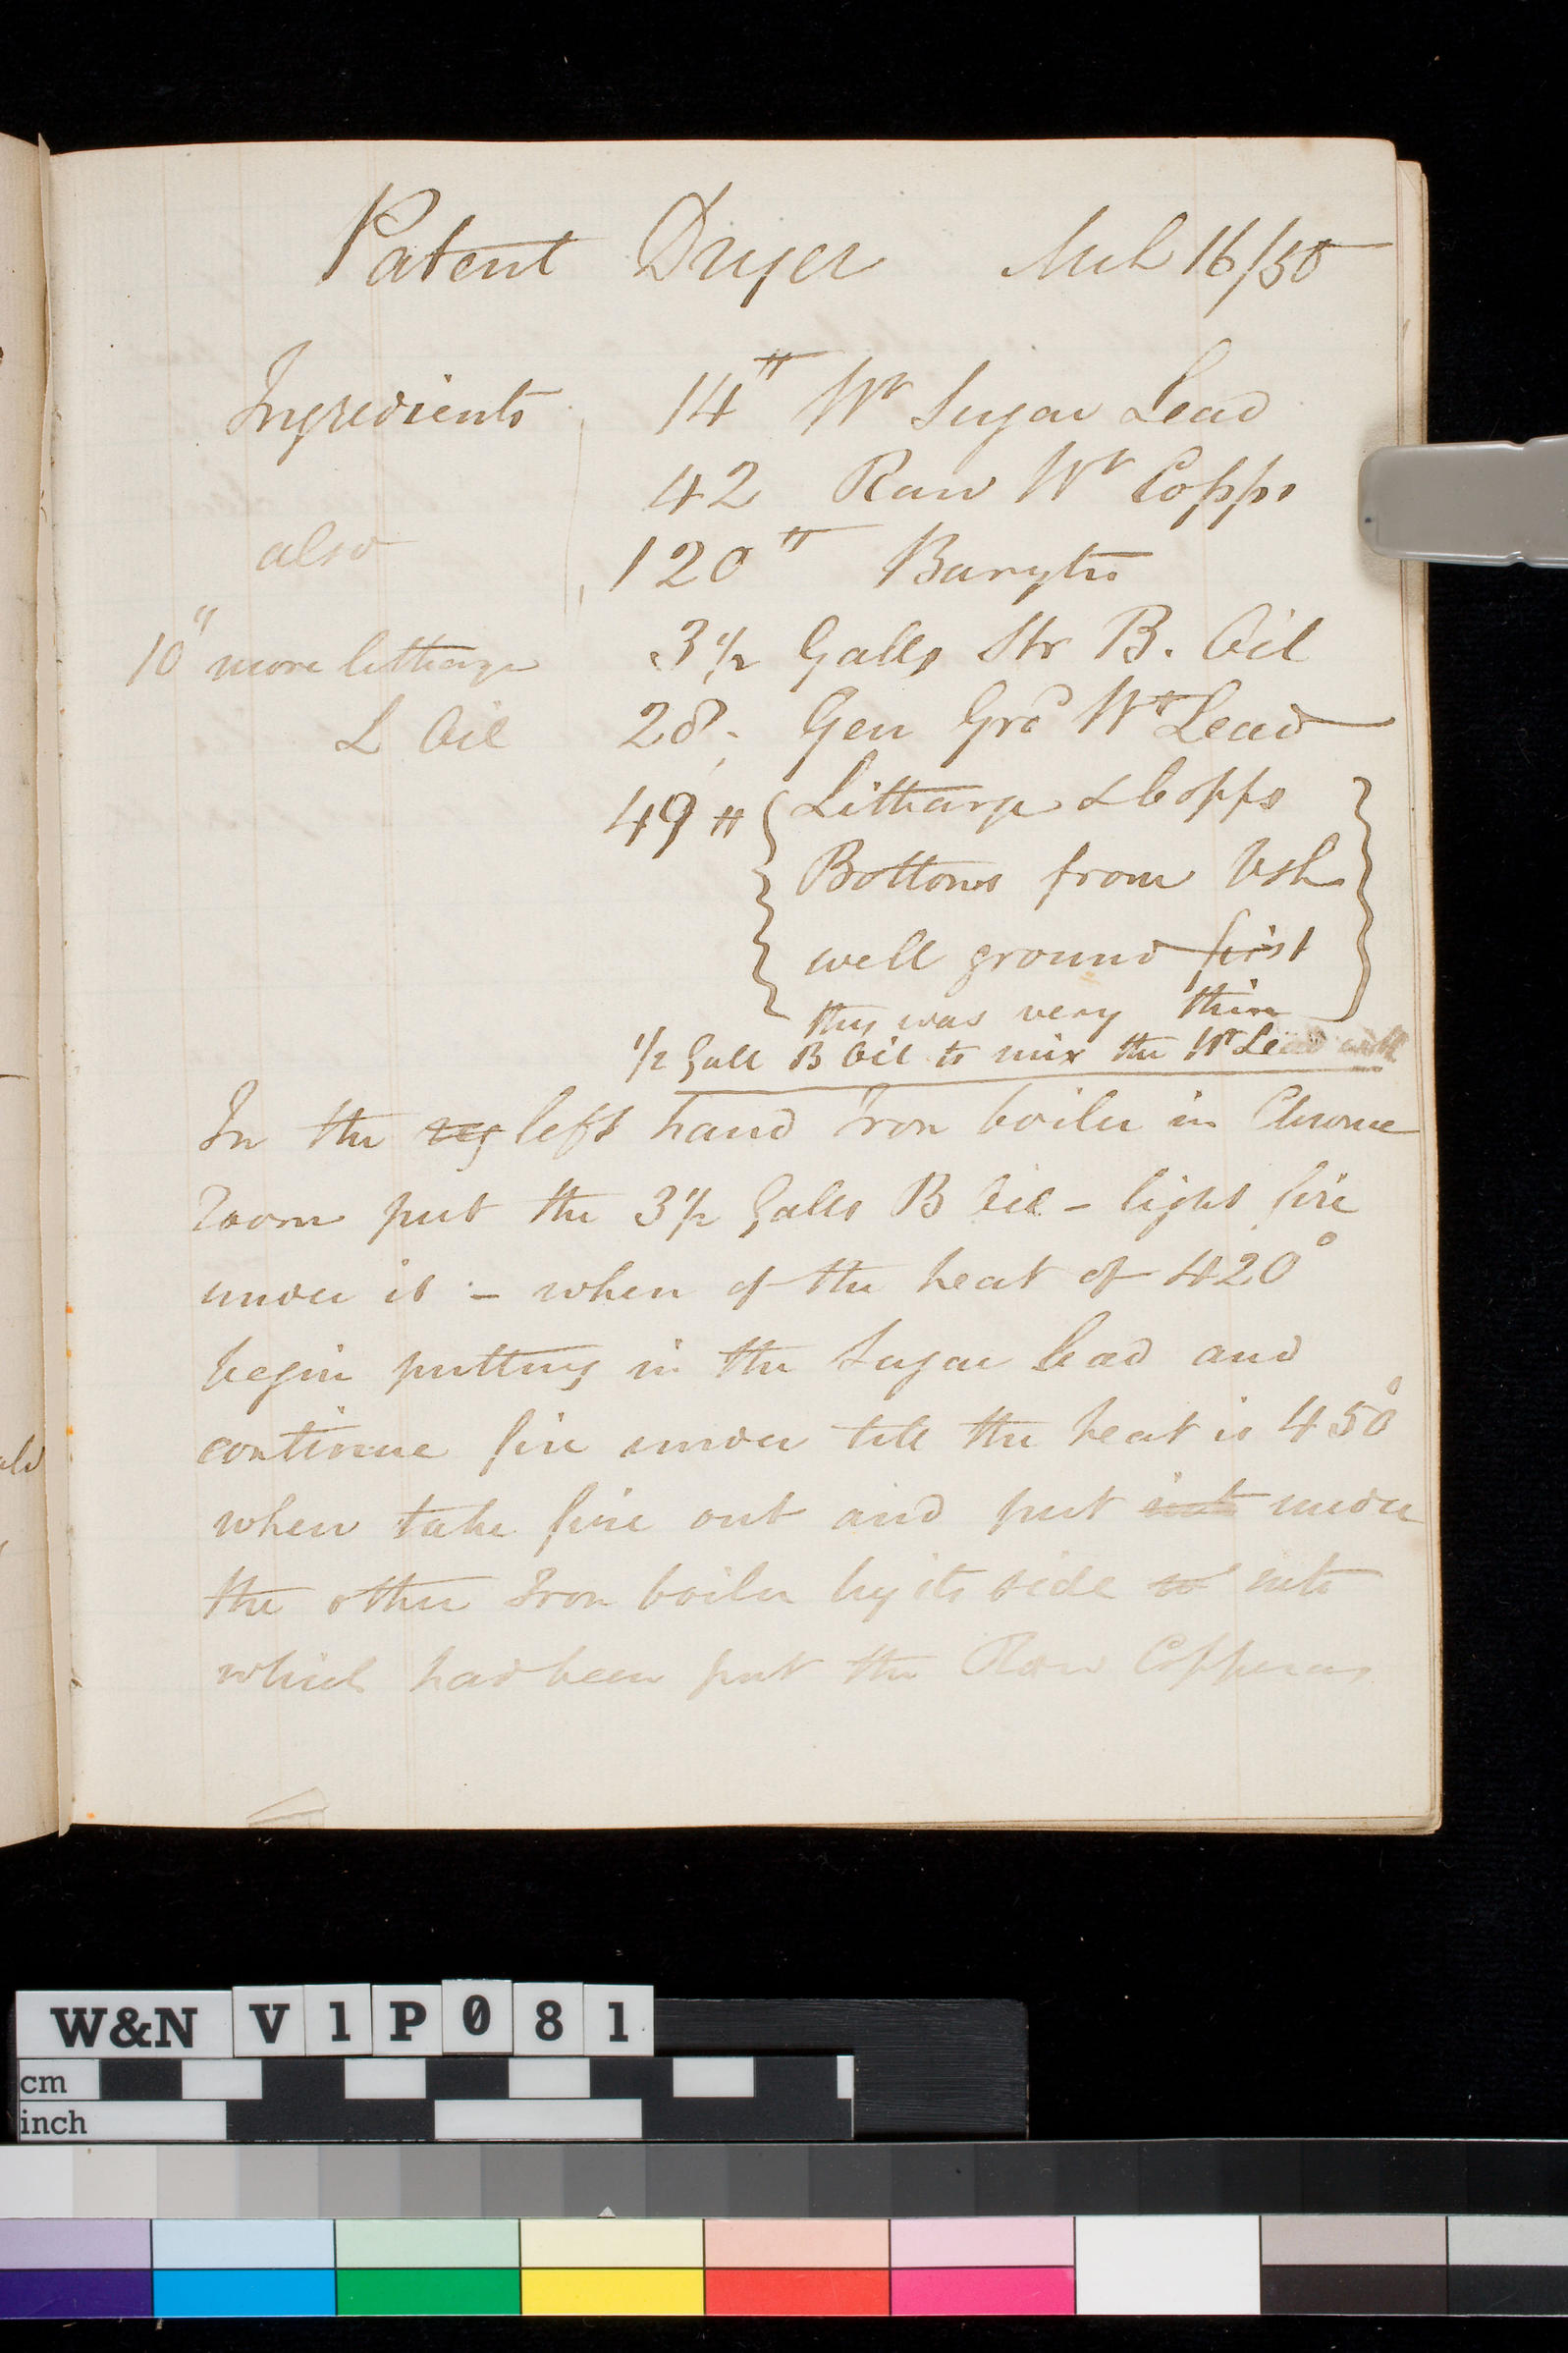 Patent Dryer Mch 16/50
Ingredients 14" Wt Sugar Lead
42 Raw Wt Copps
also
120" Barytes
10" more litharge
3½ Galls Str B. Oil
L Oil
28. Gen Grd Wt Lead
49 " Litharge & Copps
Bottoms from Vsh
well ground first
this was very thin
½ Gall B Oil to mix the Wt Lead with
In the reg left hand Iron boiler in Chrome
room put the 3½ Galls B Oil – light fire
under it – when of the heat of 420°
begin putting in the Sugar lead and
continue fire under till the heat is 450°
when take fire out and put into under
the other Iron boiler by its side into
which had been put the Raw Copperas
W&N V1P081
cm
inch